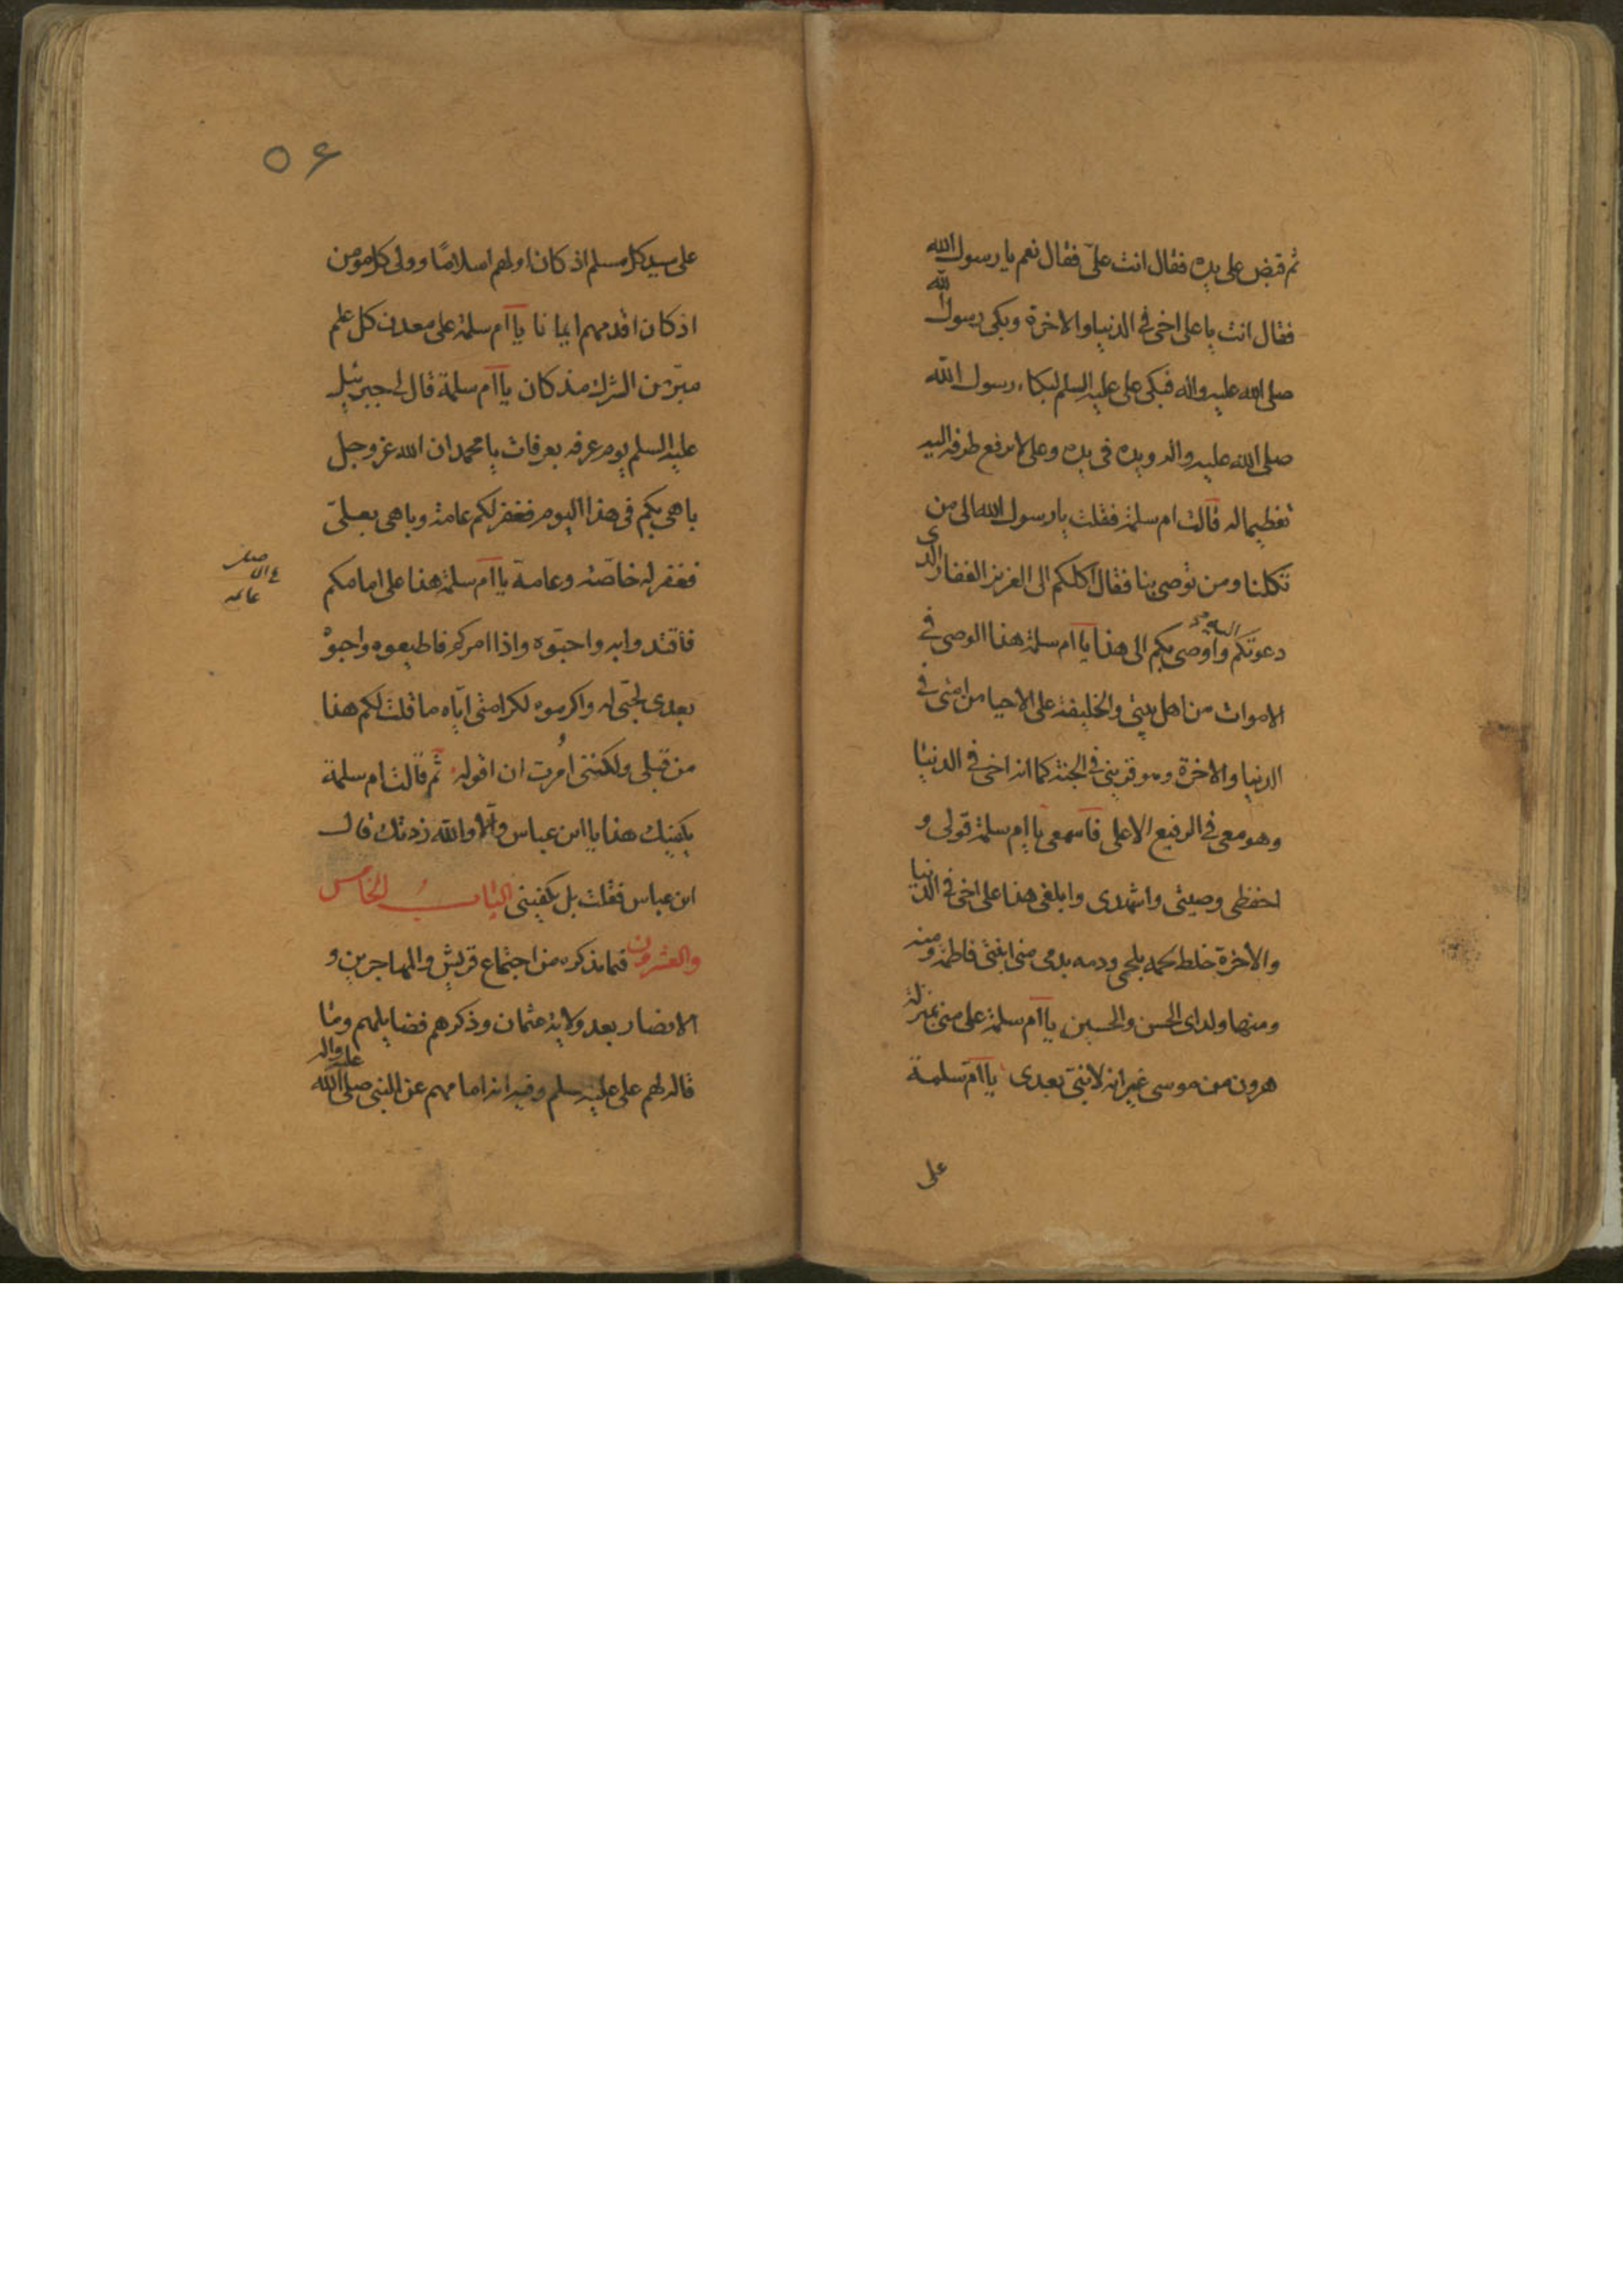 ثم قبض على يده فقال انت علىّ فقال نعم يا رسول الله
فقال انت يا على اخى فى الدنيا والاخرة وبكى رسول الله
صلى الله عليه واله فبكى على عليه السلم لبكاء رسول الله
صلى الله عليه واله ويده فى يده وعلى لا يرفع طرفه اليه
تعظيما له قالت ام سلمة فقلت يا رسول الله الى من
تكلنا ومن توصى بنا فقال اكلكم الى العزيز الغفار الذى
دعوتكم اليه واوصى بكم الى هذا يا ام سلمة هذا الوصى فى
الاموات من اهل بيتى والخليفة على الاحيا من امتى فى
الدنيا والاخرة وهو قرينى فى الجنة كما انه اخى فى الدنيا
وهو معى فى الرفيع الاعلى فاسمعى يا ام سلمة قولى و
احفظى وصيتى واشهدى وابلغى هذا على اخى فى الدنيا
والاخرة خلط لحمه بلحمى ودمه بدمى منى ابنتى فاطمة ومنه
ومنها ولداى الحسن والحسين يا ام سلمة على منى بمنزلة
هرون من موسى غير انه لا نبىّ بعدى يا امّ سلمة
على
٥٤
على سيد كل مسلم اذ كان اولهم اسلامًا وولى كل مومن
اذ كان اقدمهم ايمانا يا ام سلمة على معدن كل علم
مبرّ من الشرك مذ كان يا ام سلمة قال لى جبرئيل
عليه السلم يوم عرفه بعرفات يا محمد ان الله عز وجل
باهى بكم فى هذا اليوم فغفر لكم عامة وباهى بعلىّ
فغفر له خاصّة وعامة يا ام سلمة هذا على امامكم
فاقتدوا به واحبّوه واذا امركم فاطيعوه واحبوْ
بعدى لحبّى له واكرموه لكرامتى ايّاه ما قلت لكم هذا
من قبلى ولكننى اُمرت ان اقوله ثم قالت ام سلمة
يكفيك هذا يا ابن عباس والا والله زدتك قال
ابن عباس فقلت بل يكفينى الباب الخامس
والعشرون فيما نذكره من اجتماع قريش والمهاجرين و
الانصار بعد ولاية عثمان وذكرهم فضايلهم وما
قاله لهم على عليه سلم وفيه انه امامهم عن النبى صلى الله عليه واله